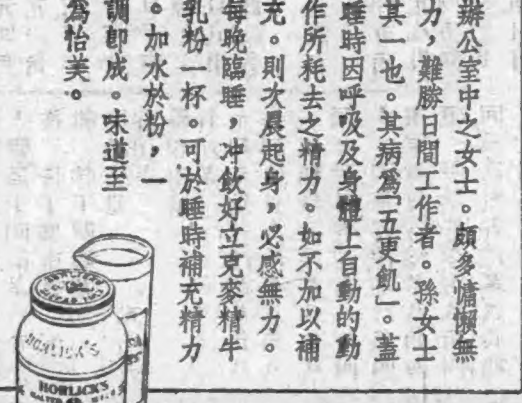 辦公室中之女士。頗多慵懶無
力,難勝日間工作者。孫女士
其一也。其病爲「五更飢」。蓋
睡時因呼吸及身體上自動的動
作所耗去之精力。如不加以補
充。則次晨起身,必感無力。
每晚臨睡,冲飲好立克麥精牛
乳粉一杯。可於睡時補充精力
。加水於粉,一
調卽成。味道至
爲怡美。
HORLICK'S
HORLICK'S
HORLICK'S